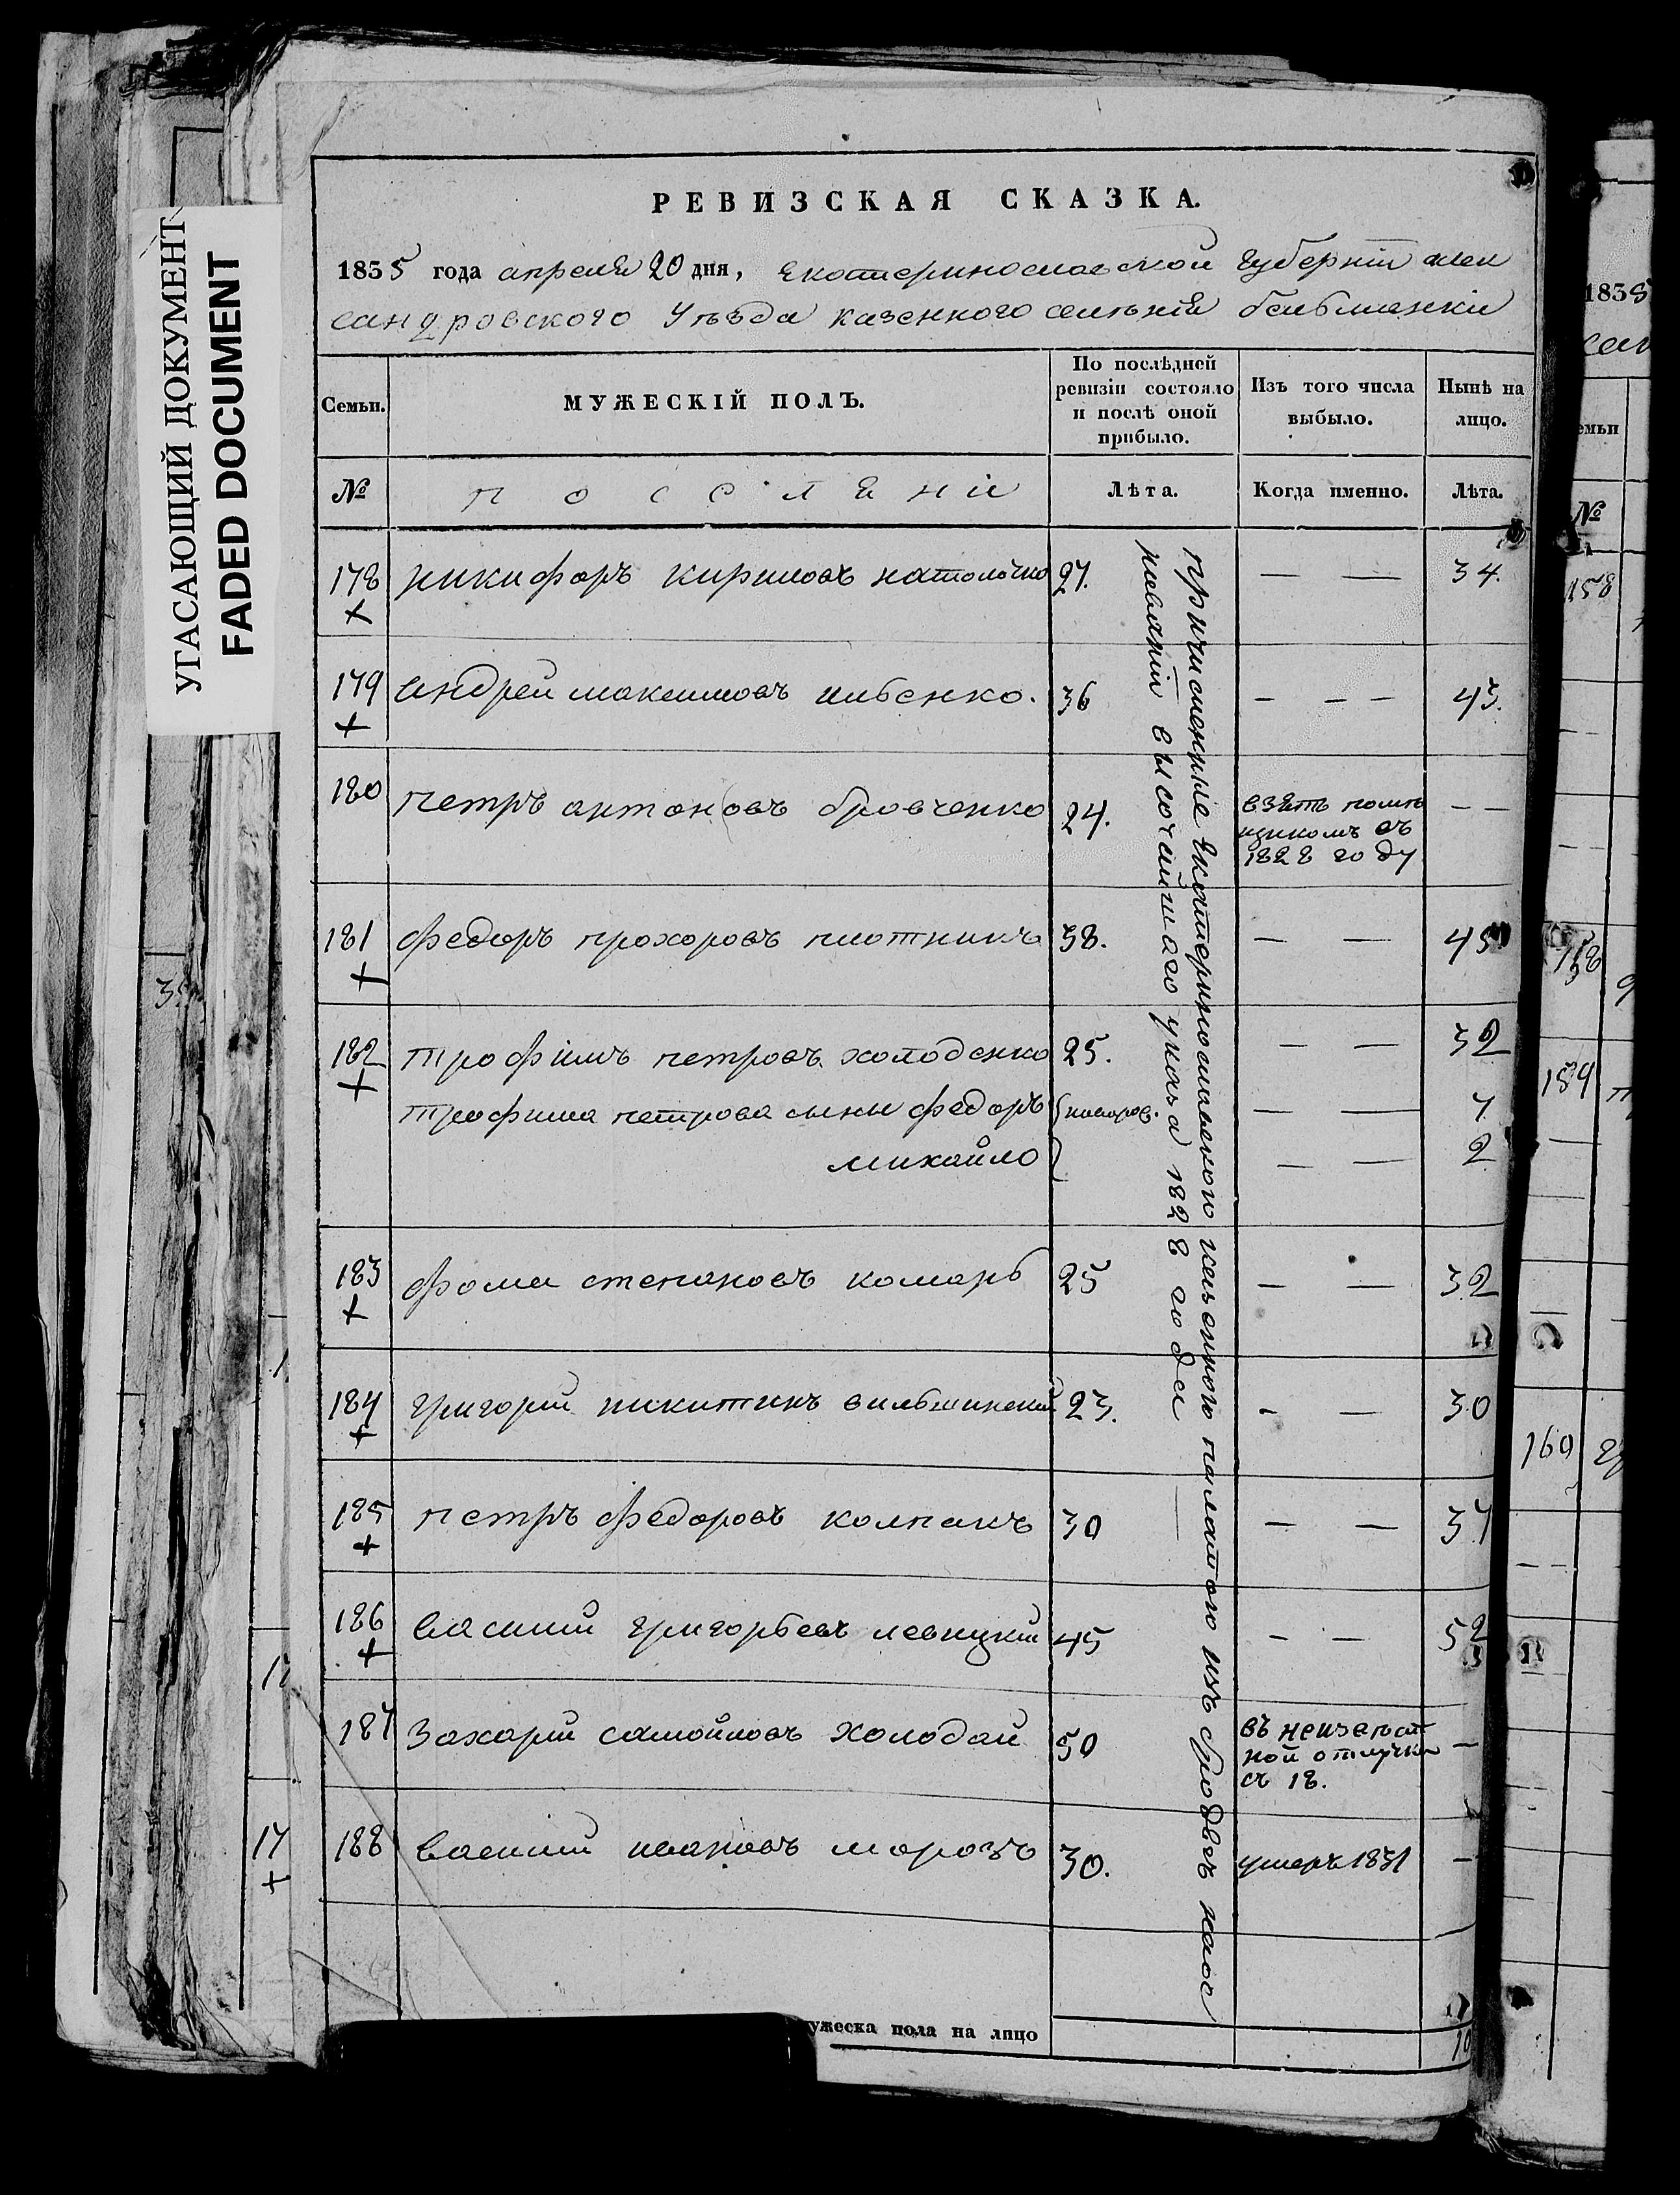 УГАСАЮЩИЙ ДОКУМЕНТ
FADED DOCUMENT
РЕВИЗСКАЯ СКАЗКА.
1835 года апреля 20 дня, Екатеринославской губерніи Алек
сандровского Уѣзда казенного селѣнія Бельманки
Семьи. МУЖЕСКІЙ ПОЛЪ. По послѣдней ревизіи состояло и послѣ оной прибыло. Изъ того числа выбыло. Нынѣ на лицо.
№ поселяни Лѣта. Когда именно. Лѣта.
178 никифоръ кириловъ 27. — — 34.
179 андрей максимовъ 36 — — — 43.
180 петръ антоновъ бровченко 24. взятъ помѣ — —
щикомъ въ
1828 году
181 федоръ прохоровъ плотникъ 38. — — 45
182 трофимъ петровъ холоденко 25. — — 32
трофима петрова сыны федоръ новорож. — — 7
михайло — — 2
183 фома степановъ комаръ 25 — — 32
184 григорий никитинъ вильшинский 23. — — 30
185 петръ федоровъ колпакъ 30 — — 37
186 василий григорьевъ левицкий 45 — — 52
187 Захарий самойловъ холодай 50 въ неизвѣст —
ной отлучки
съ 18.
188 василий ивановъ морозъ 30. умеръ 1831 —
причисленные Екатеринославскою казенною палатою изъ бродягъ на ос
новании высочайшаго указа 1828 года
ужеска пола на лицо 10
1835
емьи
№
158
159
160
17